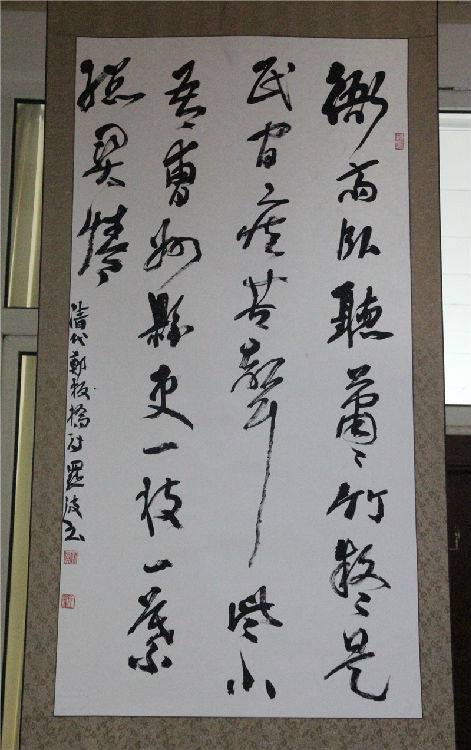 衙齋臥聽蕭〻竹疑是
民间疾苦聲些小
吾曹州縣吏一枝一葉
總關情
清代鄭板橋詩羅波书